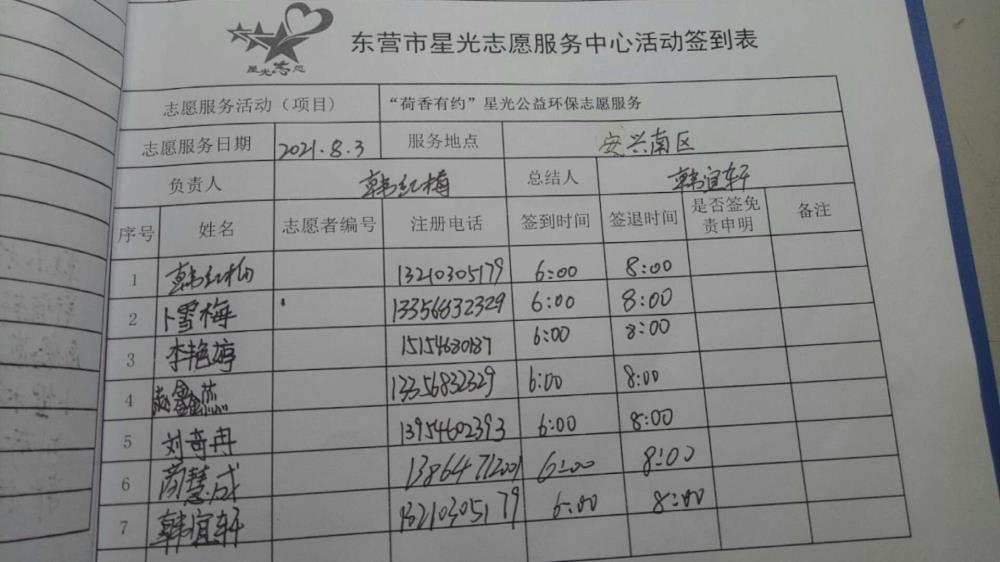 星光志愿
东营市星光志愿服务中心活动签到表
志愿服务活动（项目） “荷香有约”星光公益环保志愿服务
志愿服务日期 2021.8.3 服务地点 安兴南区
负责人 韩红梅 总结人 韩宜轩
序号 姓名 志愿者编号 注册电话 签到时间 签退时间 是否签免责申明 备注
1 韩红梅 13210305179 6:00 8:00
2 卜雪梅 13356832329 6:00 8:00
3 李艳婷 6:00 8:00
4 13356832329 6:00 8:00
5 刘奇冉 13954602393 6:00 8:00
6 慧成 13864712001 6:00 8:00
7 韩宜轩 13210305179 6:00 8:00